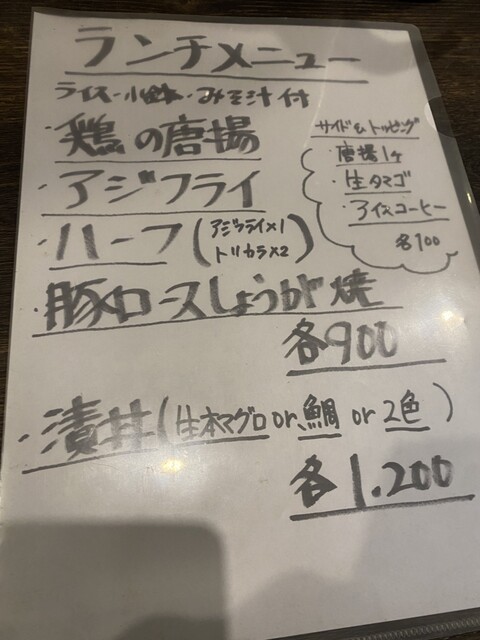 ランチメニュー
ライス・小鉢・みそ汁付
・鶏の唐揚
・アジフライ
・ハーフ(アジフライ×1
トリカラ×2)
・豚ロースしょうが焼
各900
サイド&トッピング
・唐揚1ヶ
・生タマゴ
・アイスコーヒー
各100
・漬丼(生本マグロor鯛or2色)
各1.200